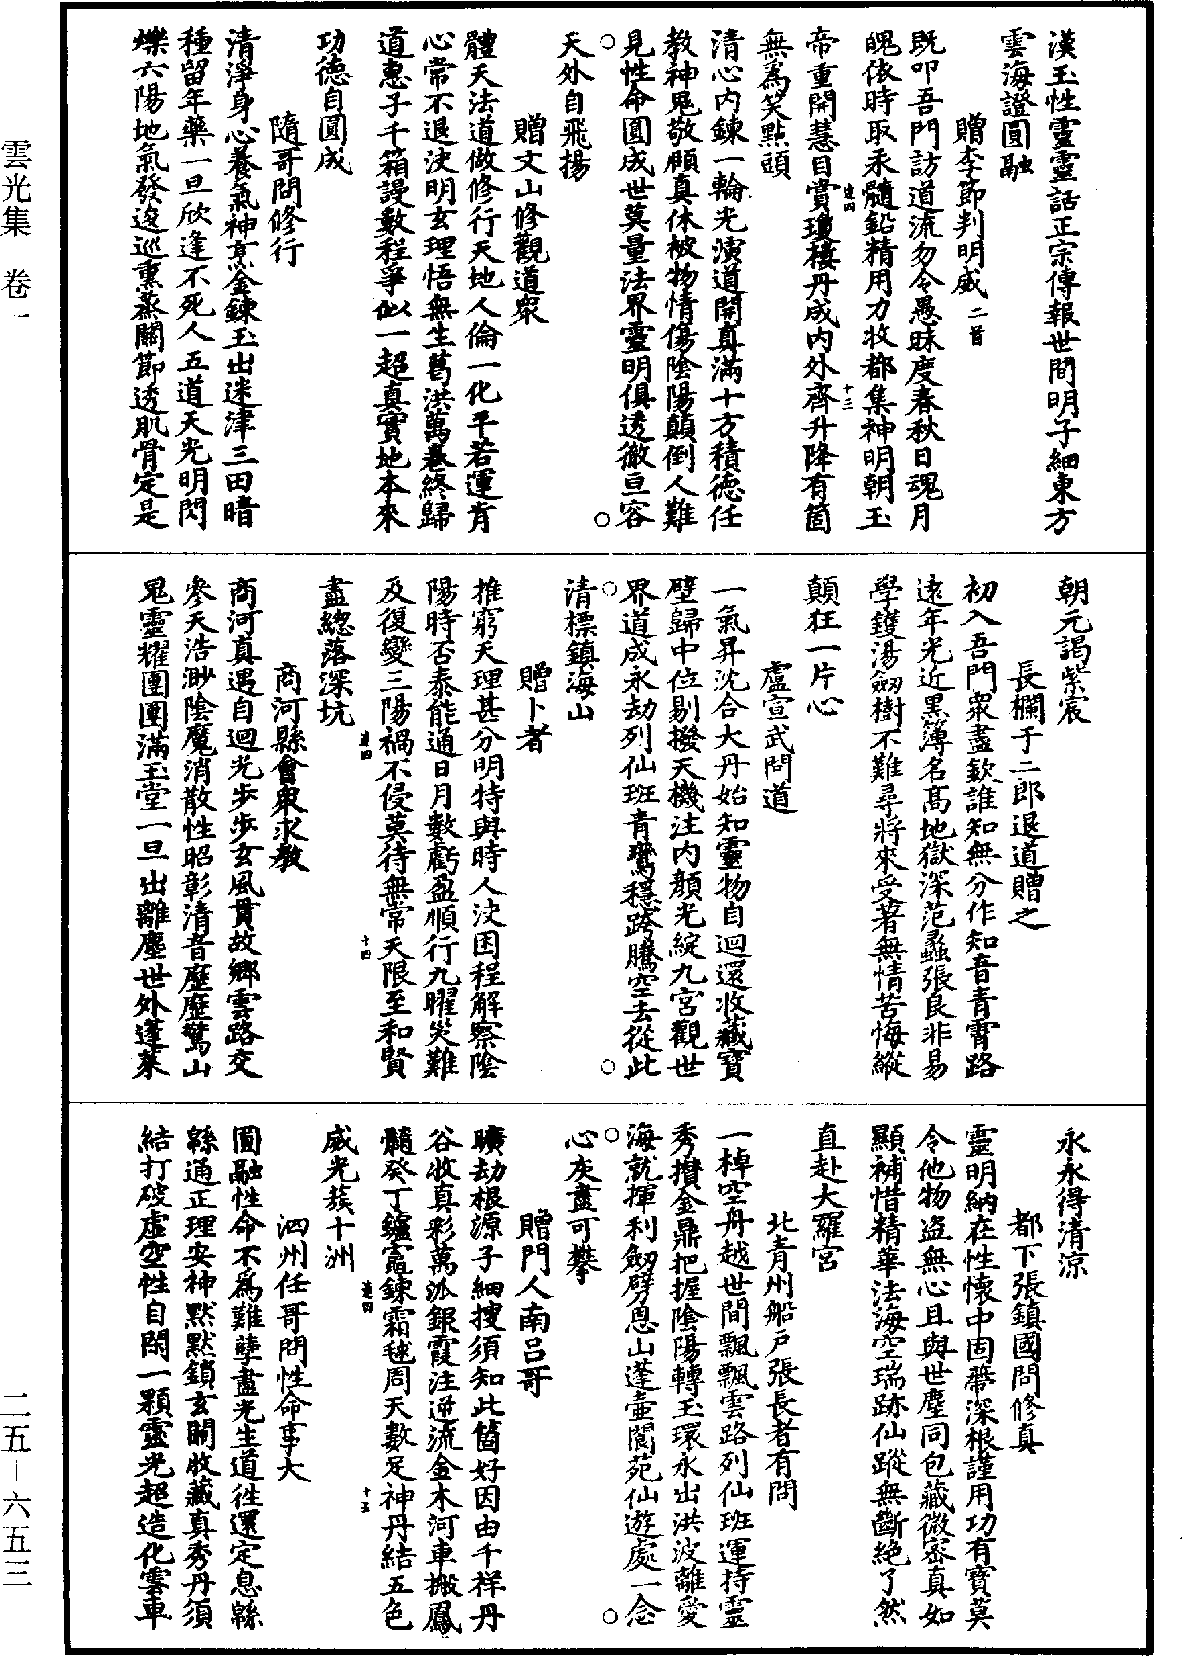 漢玉性靈靈話正宗傳報世間明子細東方
雲海證圓融
贈李節判明威二首
既叩吾門訪道流勿令愚昧度春秋日魂月
魄依時取汞髓鉛精用力收都集神明朝玉
帝重開慧目賞瓊樓丹成內外齊升降有箇
無爲笑點頭
清心內鍊一輪光演道開真滿十方積德任
教神鬼敬願真休被物情傷陰陽顛倒人難
見性命圓成世莫量法界靈明俱透徹亘容
天外自飛揚
贈文山修觀道衆
體天法道做修行天地人倫一化平若運肯
心常不退決明玄理悟無生葛洪萬卷終歸
道惠子千箱謾數程爭似一超真實地本來
功德自圓成
隨哥問修行
清淨身心養氣神烹金鍊玉出迷津三田暗
種留年藥一旦欣逢不死人五道天光明閃
爍六陽地氣發逡巡熏蒸關節透肌骨定是
朝元謁紫宸
長欄于二郎退道贈之
初入吾門衆盡欽誰知無分作知音青霄路
遠年光近黑簿名高地獄深范蠡張良非易
學鑊湯劒樹不難尋將來受著無情苦悔縱
顛狂一片心
盧宣武問道
一氣昇沈合大丹始知靈物自迴還收藏寶
壁歸中位剔撥天機注內顏光綻九宮觀世
界道成永劫列仙班青鸞穩跨騰空去從此
清標鎮海山
贈卜者
推窮天理甚分明特與時人決困程解察陰
陽時否泰能通日月數虧盈順行九曜災難
及復變三陽禍不侵莫待無常天限至和賢
盡總落深坑
商河縣會衆求教
商河真遇自迴光步步玄風貫故鄉雲路交
參天浩渺陰魔消散性昭彰清音歷歷驚山
鬼靈耀團團滿玉堂一旦出離塵世外蓬萊
永永得清涼
都下張鎮國問修真
靈明納在性懷中固蔕深根謹用功有寶莫
令他物盗無心且與世塵同包藏微密真如
顯補惜精華法海空瑞跡仙蹤無斷絕了然
直赴大羅宮
北青州船戶張長者有問
一棹空舟越世間飄飄雲路列仙班運持靈
秀攢金鼎把握陰陽轉玉環永出洪波離愛
海就揮利劒劈恩山蓬壺閬苑仙遊處一念
心灰盡可攀
贈門人南呂哥
曠劫根源子細搜須知此箇好因由千祥丹
谷收真彩萬派銀霞注逆流金木河車搬鳳
髓癸丁鑪竈鍊霜毬周天數足神丹結五色
威光簇十洲
泗州任哥問性命事大
圓融性命不爲難孽盡光生道徃還定息緜
緜通正理安神默默鎖玄關收藏真秀丹須
結打破虛空性自閑一顆靈光超造化雲車
雲光集 卷一
二五－六五三